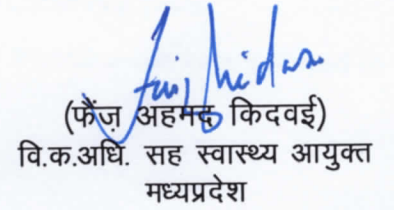 (फैज़ अहमद किदवई)
वि.क.अधि. सह स्वास्थ्य आयुक्त
मध्यप्रदेश